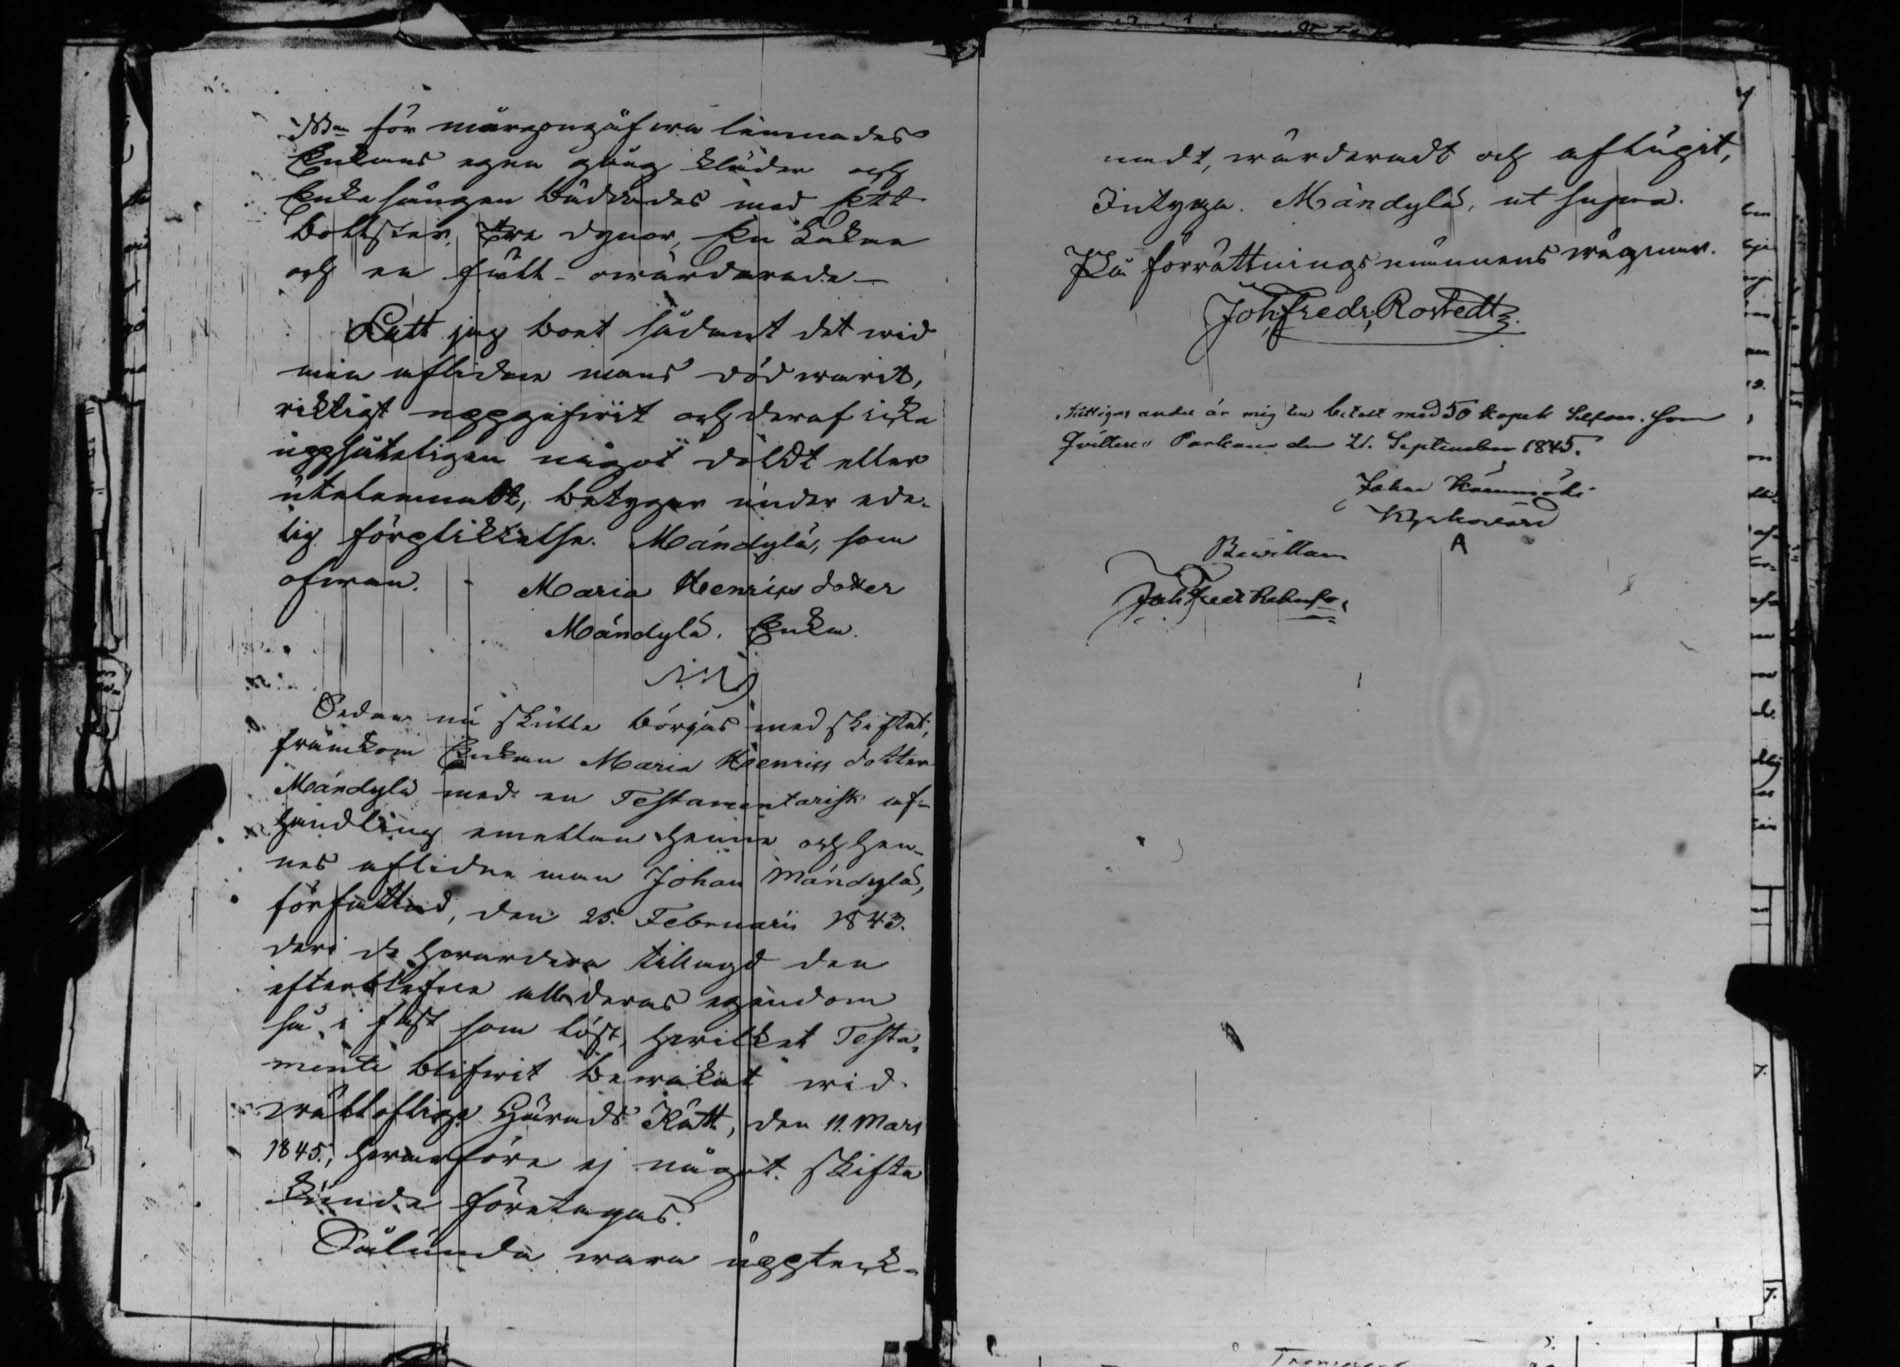 för morgongåfwa lämnades
Enkans egen gång kläder och
Enkesängen bäddades med Ett
bollster, Tre dynor, En Lakan
och en fäll owärderade —
Latt jag boet sådant det wid
min aflidne mans död warit,
riktigt uppgifwit och deraf icke
uppsåteligen något döldt eller
utelemnatt, betygar under ede-
lig förpliktelse. Mándylä, som
ofwan.
Maria Henrics dotter
Mándylä. Enka.
Sedan nu skulle börjas med skiftet,
framkom Enkan Maria Henrics dotter
Mándylä med en Testamentarisk af-
handling emellan henne och hen-
nes aflidne man Johan Mándylä,
författad, den 25. Februarii 1843.
deri de hwarandra tillagd den
efterblefne all deras egendom
så i fast som löst, hwilket Testa-
mente blifwit bewakat wid
wällofliga Härads Rätt, den 11. Mars
1845., hwarföre ej något skifte
kunde företagas.
Sålunda wara uppteck-
nadt, wärderadt och aflupit,
Intyga. Mándylä, ut supra.
På förrättningsmännens wägnar.
Joh, Fredr, Rostedt
andel är mig betalt med 50 kopek Silfwer. som
Qvitteras Parkano den 21. September 1845.
Johan
Bewittnar
Joh Fredr